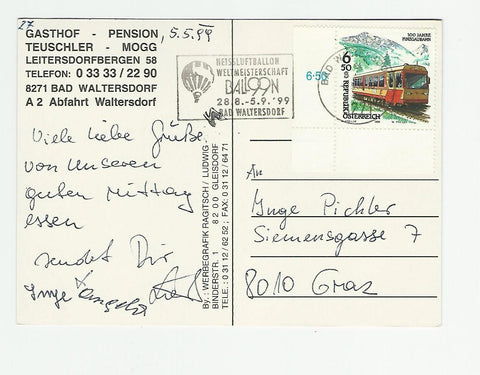 27
GASTHOF - PENSION, 5.5.99
TEUSCHLER - MOGG
LEITERSDORFBERGEN 58
TELEFON: 0 33 33 / 22 90
8271 BAD WALTERSDORF
A 2 Abfahrt Waltersdorf
HEISSLUFTBALLON
WELTMEISTERSCHAFT
BALL99N
28.8.-5.9.'99
BAD WALTERSDORF
6.50
100 JAHRE
PINZGAUBAHN
6
50
REPUBLIK
ÖSTERREICH
Viele liebe Grüße
von unseren
guten Mittag
essen
sendet Dir
Inge
By.: WERBEGRAFIK RAGITSCH / LUDWIG -
BINDERSTR. 1 8200 GLEISDORF
TELE.: 03112/62 52; FAX: 03112/64 71
An
Inge Pichler
Siemensgasse 7
8010 Graz